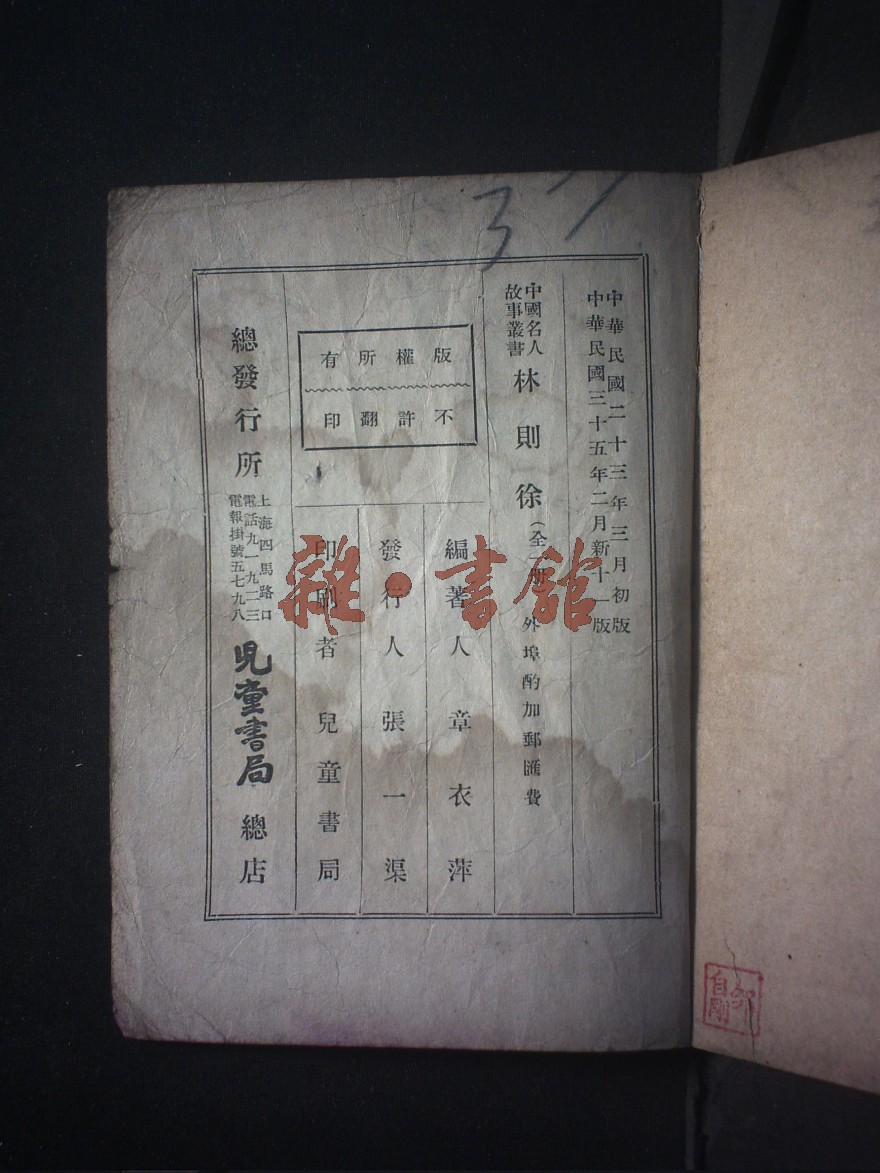 中華民國二十三年三月初版
中華民國三十五年二月新十一版
中國名人
故事叢書
林則徐
(全一册)
外埠酌加郵匯費
版權所有
不許翻印
編著人 章衣萍
發行人 張一渠
印刷者 兒童書局
總發行所
上海四馬路口
電話九一九二三
電報掛號五七九八
兒童書局
總店
雜·書館